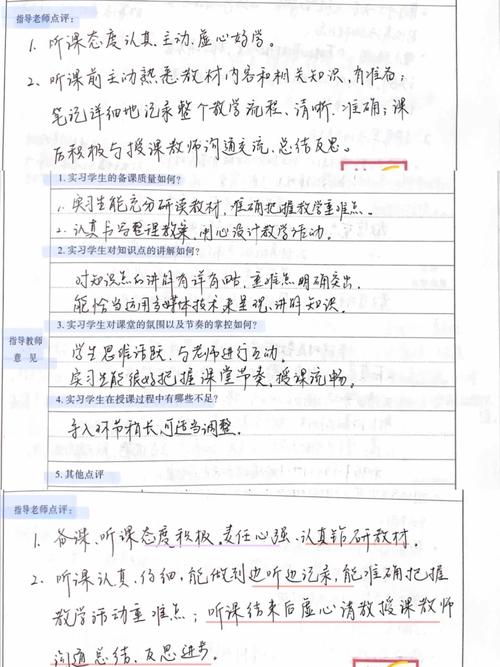 指导老师点评:
1. 听课态度认真、主动、虚心好学。
2、听课前主动熟悉教材内容和相关知识,有准备;
笔记详细地记录整个教学流程、清晰、准确;课
后积极与授课教师沟通交流、总结反思。
1. 实习学生的备课质量如何?
1. 实习生能充分研读教材,准确把握教学重难点。
2. 认真书写整理教案,用心设计教学活动。
2. 实习学生对知识点的讲解如何?
对知识点的讲解有详有略,重难点明确突出.
能恰当运用多媒体技术来呈现、讲解知识.
指导教师
意 见
3. 实习学生对课堂的氛围以及节奏的掌控如何?
学生思维活跃、与老师进行互动。
实习生能很好把握课堂节奏,授课流畅。
4. 实习学生在授课过程中有哪些不足?
导入环节稍长,可适当调整.
5. 其他点评
指导老师点评:
1. 备课、听课态度积极、责任心强、认真钻研教材.
2. 听课认真、仔细,能做到边听边记录,能准确把握
教学活动重难点;听课结束后虚心请教授课教师
沟通总结、反思进步.